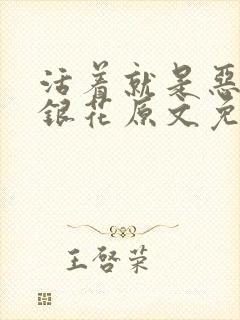 活着就是恶
银花原文免
王啓荣